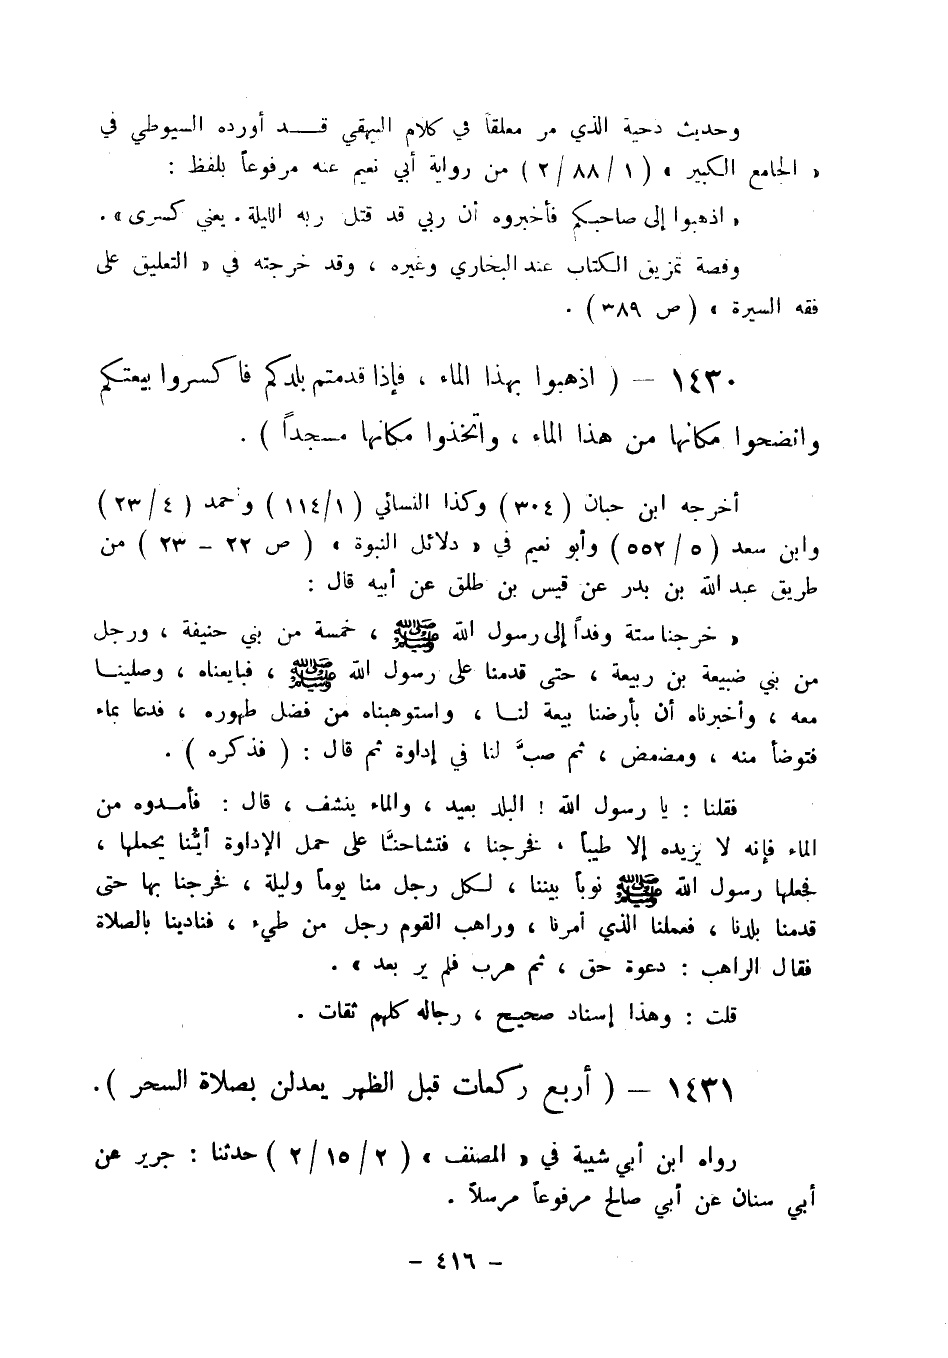 وحديث دحية الذي مر معلقاً في كلام البيهقي قـــد أورده السيوطي في
« الجامع الكبير » ( ١ / ٨٨ / ٢ ) من رواية أبي نعيم عنه مرفوعاً بلفظ :
« اذهبوا إلى صاحبكم فأخبروه أن ربي قد قتل ربه الليلة . يعني كسرى » .
وقصة تمزيق الكتاب عند البخاري وغيره ، وقد خرجته في « التعليق على
فقه السيرة » ( ص ٣٨٩ ) .
١٤٣٠ – ( اذهبوا بهذا الماء ، فإذا قدمتم بلدكم فاكسروا بيعتكم
وانضحوا مكانها من هذا الماء ، واتخذوا مكانها مسجداً ) .
أخرجه ابن حبان ( ٣٠٤ ) وكذا النسائي ( ١ / ١١٤ ) وحمد ( ٤ / ٢٣ )
وابن سعد ( ٥ / ٥٥٢ ) وأبو نعيم في « دلائل النبوة » ( ص ٢٢ – ٢٣ ) من
طريق عبد الله بن بدر عن قيس بن طلق عن أبيه قال :
« خرجنا ستة وفداً إلى رسول الله ﷺ ، خمسة من بني حنيفة ، ورجل
من بني ضبيعة بن ربيعة ، حتى قدمنا على رسول الله ﷺ ، فبايعناه ، وصلينـا
معه ، وأخبرناه أن بأرضنا بيعة لنـا ، واستوهبناه من فضل طهوره ، فدعا بماء
فتوضأ منه ، ومضمض ، ثم صبَّ لنا في إداوة ثم قال : ( فذكره ) .
فقلنا : يا رسول الله ! البلد بعيد ، والماء ينشف ، قال : فأمـدوه من
الماء فإنه لا يزيده إلا طيباً ، فخرجنا ، فتشاحنَّا على حمل الإداوة أيُّنا يحملها ،
فجعلها رسول الله ﷺ نوباً بيننا ، لـكل رجل منا يوماً وليلة ، فخرجنا بها حتى
قدمنا بلدنا ، فعملنا الذي أمرنا ، وراهب القوم رجل من طيء ، فنادينا بالصلاة
فقال الراهب : دعوة حق ، ثم هرب فلم ير بعد » .
قلت : وهذا إسناد صحيح ، رجاله كلهم ثقات .
١٤٣١ – ( أربع ركعات قبل الظهر يعدلن بصلاة السحر ) .
رواه ابن أبي شيبة في « المصنف » ( ٢ / ١٥ / ٢ ) حدثنا : جرير عن
أبي سنان عن أبي صالح مرفوعاً مرسلاً .
– ٤١٦ –